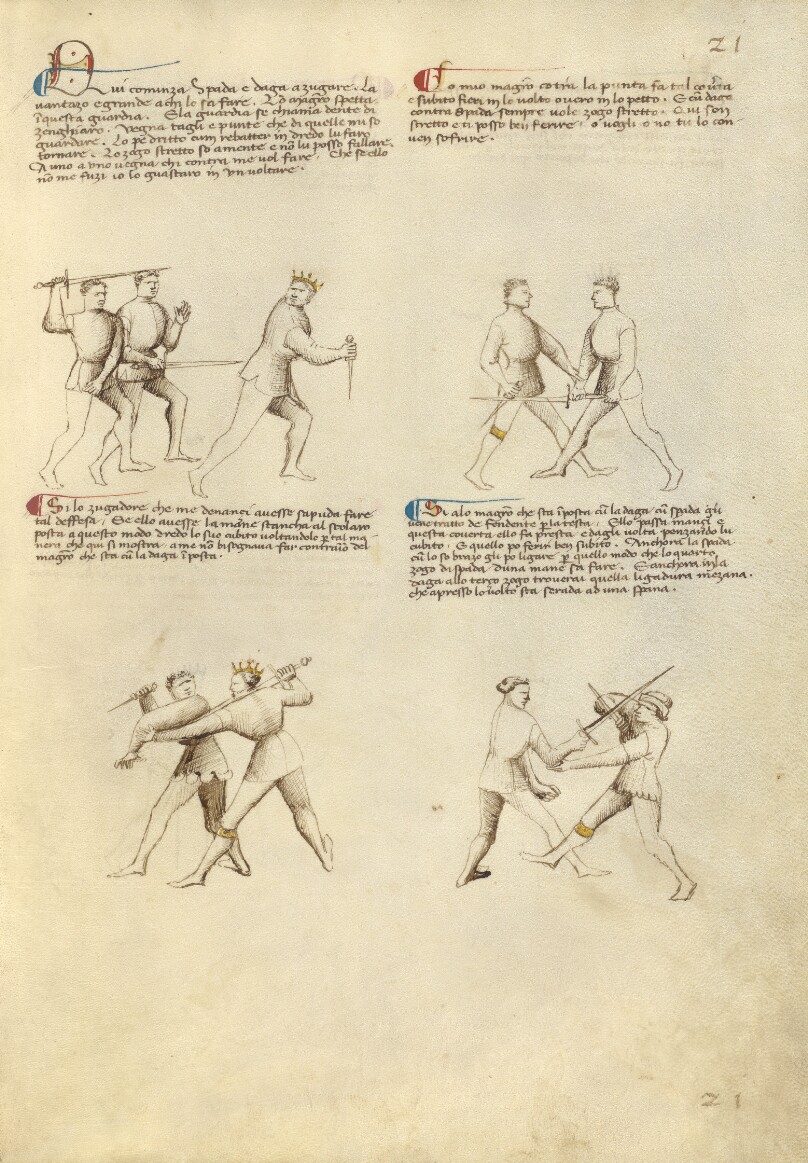 21
Qui cominza Spada e daga a zugare. Lo
vantazo e grande a chi lo sa fare. Lo magro spetta
i questa guardia. E la guardia se chiama dente di
zenghiaro. Vegna tagli e punte che di quelle mi so
guardare. Lo pe dritto cum rebatter in dredo lu faro
tornare. Lo zogo stretto so a mente e nō lu posso fallare.
A uno a uno vegna chi contra me vol fare. Che se ello
nō me fuzi io lo guastarò in un voltare.
Lo mio magrō cōtra la punta fa tal cov̄ta
e subito fieri in lo volto overo in lo petto. E cū daga
contra spada sempre vole zogo stretto. Qui son
stretto e ti posso ben ferire, o vogli o no tu lo con-
ven sofrire.
Si lo zugadore che me denanci avesse sapuda fare
tal deffesa, Se ello avesse la mane stancha al scolaro
posta a questo modo dredo lo suo cubito voltandolo p tal ma-
nera che qui si mostra, a me nō bisognava far contrario del
magrō che sta cū la daga ī posta.
Si alo magrō che sta ī posta cū la daga, cū spada gli
vene tratto de fendente p la testa, Ello passa inanci e
questa coverta ello fa presta, e dagli volta penzando lu
cubito. E quello po ferir ben subito. Anchora la spada
cū lo so brazo gli po ligare p quello modo che lo quarto
zogo di spada d'una mane sa fare. E anchora in la
daga allo terzo zogo troverai quella ligadura mezana.
che apresso lo volto sta serada ad una spana.
21